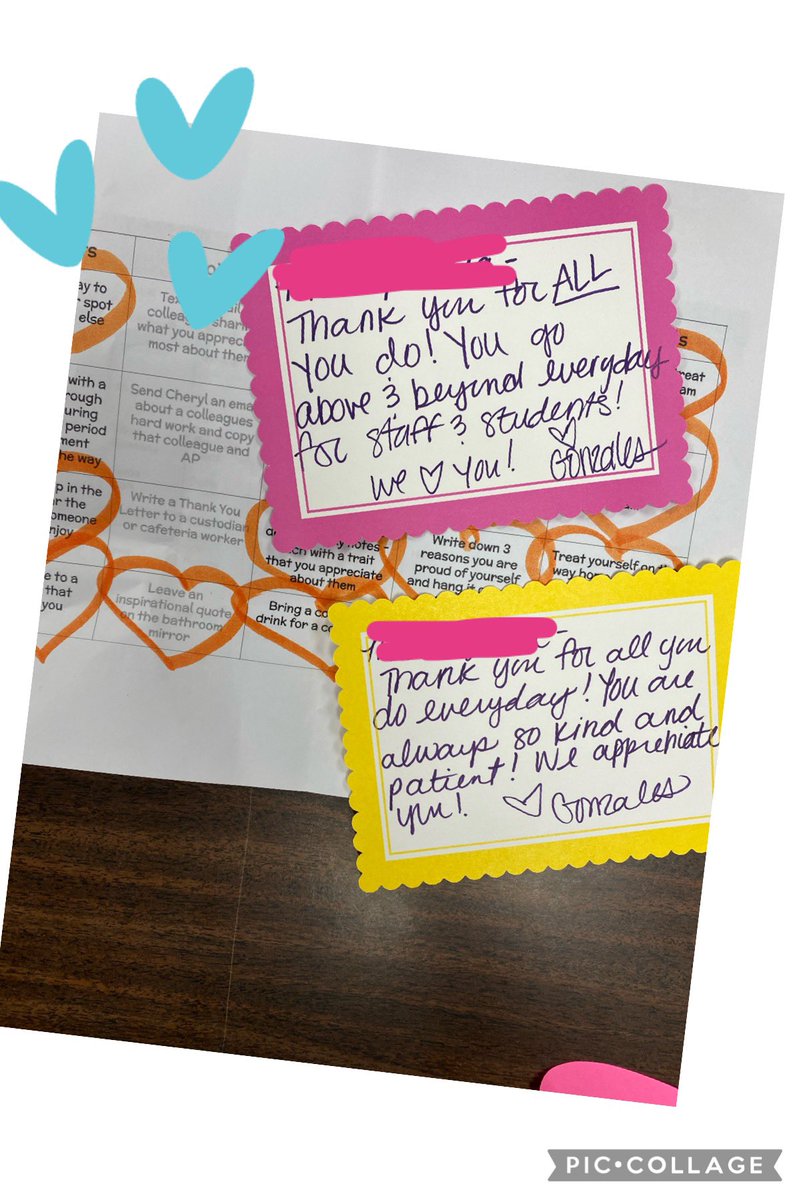 Thank you for ALL
You do! You go
above & beyond everyday
for staff & students!
We ♡ You! ♡ Gonzales
Thank you for all you
do everyday! You are
always so kind and
patient! We apprehiate
you! ♡ Gonzales
ay to
spot
else
colleag
what you apprec
most about them
with a
rough
uring
period
ment
the way
Send Cheryl an ema
about a colleagues
hard work and copy
that colleague and
AP
p in the
r the
omeone
enjoy
Write a Thank You
Letter to a custodian
or cafeteria worker
notes -
with a trait
that you appreciate
about them
Write down 3
reasons you are
proud of yourself
and hang it
Treat yourself on th
way ho
e to a
that
you
Leave an
inspirational quote
on the bathroom
mirror
Bring a co
drink for a co
reat
am
PIC•COLLAGE